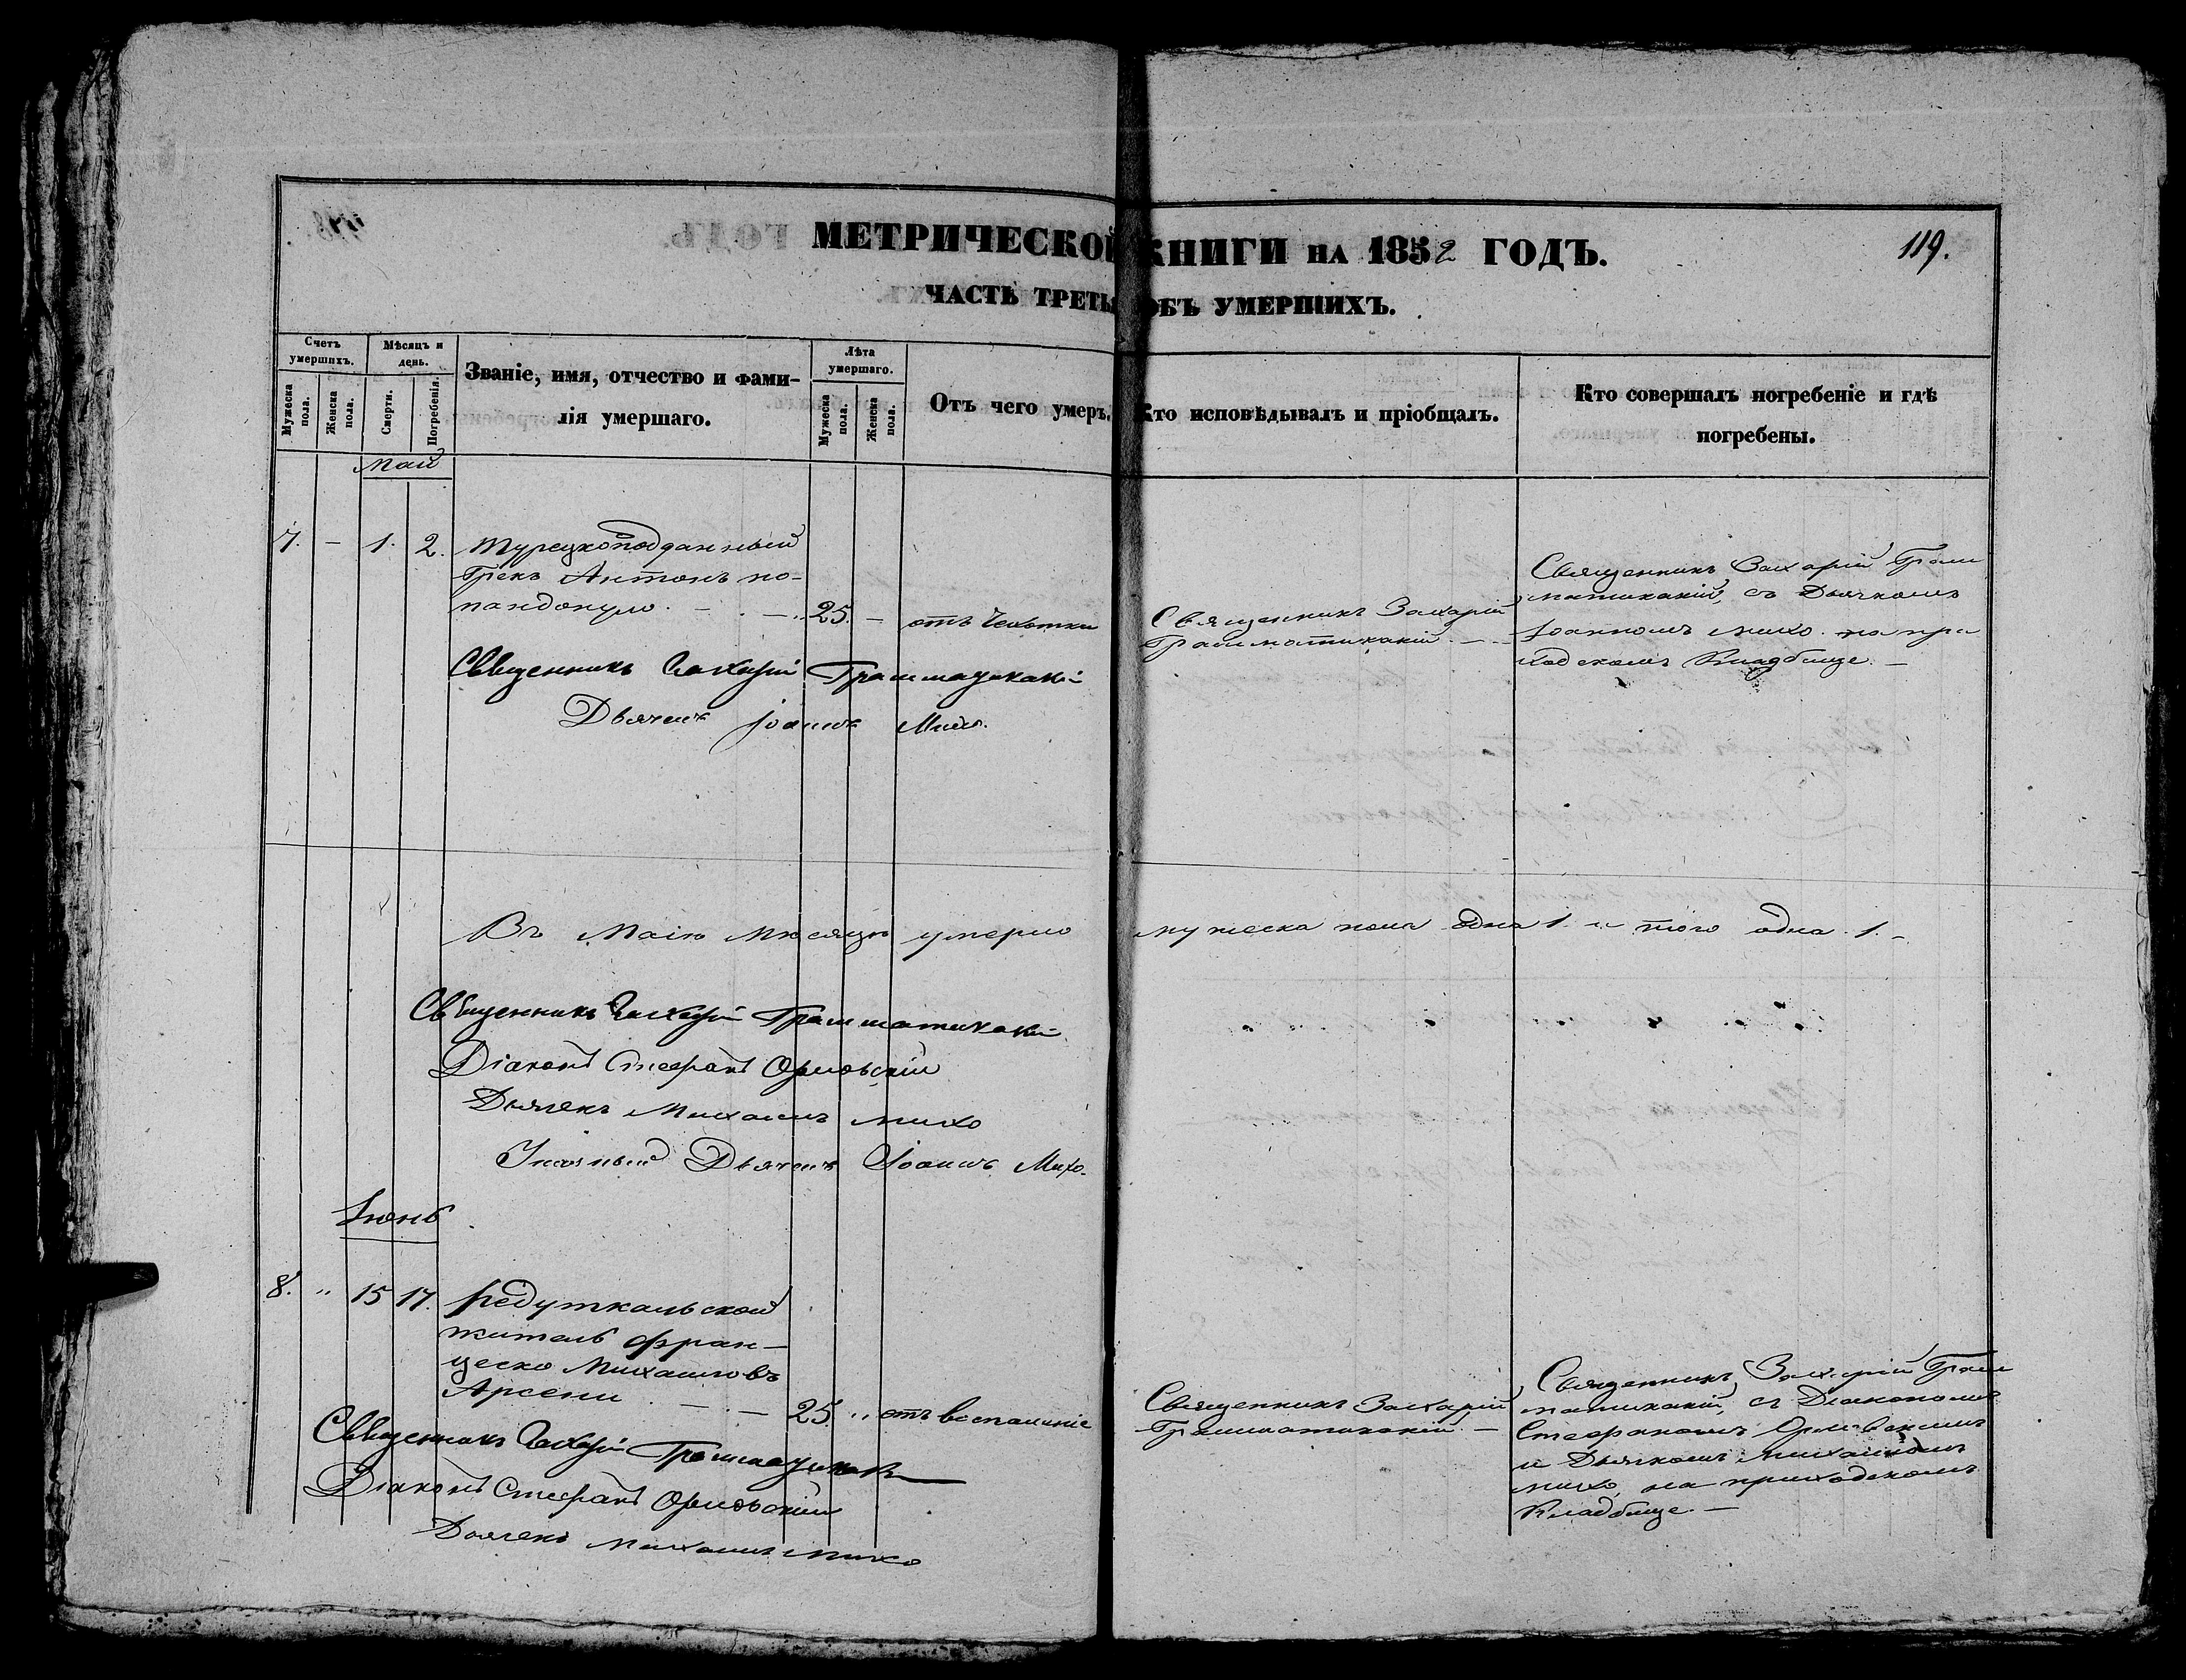 МЕТРИЧЕСКОЙ КНИГИ НА 1852 ГОДЪ.
119.
ЧАСТЬ ТРЕТЬЯ ОБЪ УМЕРШИХЪ.
Счетъ умершихъ.
Мужеска пола.
Женска пола.
Мѣсяцъ и день.
Смерти.
Погребенія.
Званіе, имя, отчество и фами-
лія умершаго.
Лѣта умершаго.
Мужеска пола.
Женска пола.
Отъ чего умеръ.
Кто исповѣдывалъ и пріобщалъ.
Кто совершалъ погребеніе и гдѣ
погребены.
Май
7. – 1. 2. Турецкоподданный
Грекъ Антонъ по-
пандопуло. – 25. – отъ Чехотки
Священникъ Захарій
Грамматикакій. –
Священникъ Захарій Грам
матикакій, съ Дьячкомъ
Іоанномъ михо. на при
ходскомъ Кладбище. –
Священникъ Захарій Грамматикакі
Дьячекъ Іоаннъ Михо.
Въ Маію мѣсяцѣ умерло мужеска пола одна 1. и того одна. 1. –
Священникъ Захарій Грамматикакі
Діаконъ Стефанъ Орловскій
Дьячекъ Михаилъ михо
Дьячекъ Іоаннъ Михо.
Іюнь
8. " 15 17. редуткальской
житель фран-
ческо Михаиловъ
Арсени – 25. " отъ воспаленіе
Священникъ Захарій
Грамматикакій. –
Священникъ Захарій Грам
матикакій, съ Діакономъ
Стефаномъ Орловскимъ
и Дьячкомъ Михаиломъ
михо, на приходскомъ
Кладбище. –
Священникъ Захарій Грамматикакі
Діаконъ Стефанъ Орловскій
Дьячекъ Михаилъ михо